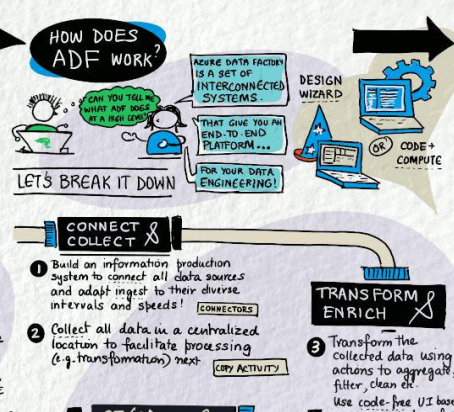 HOW DOES
ADF WORK?
CAN YOU TELL ME
WHAT ADF DOES
AT A HIGH LEVEL?
AZURE DATA FACTORY
IS A SET OF
INTERCONNECTED
SYSTEMS.
THAT GIVE YOU AN
END-TO-END
PLATFORM...
FOR YOUR DATA
ENGINEERING!
DESIGN
WIZARD
OR
CODE +
COMPUTE
LET'S BREAK IT DOWN
CONNECT
COLLECT &
1 Build an information production
system to connect all data sources
and adapt ingest to their diverse
intervals and speeds!
CONNECTORS
2 Collect all data in a centralized
location to facilitate processing
(e.g. transformation) next
COPY ACTIVITY
TRANSFORM
ENRICH &
3 Transform the
collected data using
actions to aggregate,
filter, clean etc.
Use code-free UI base